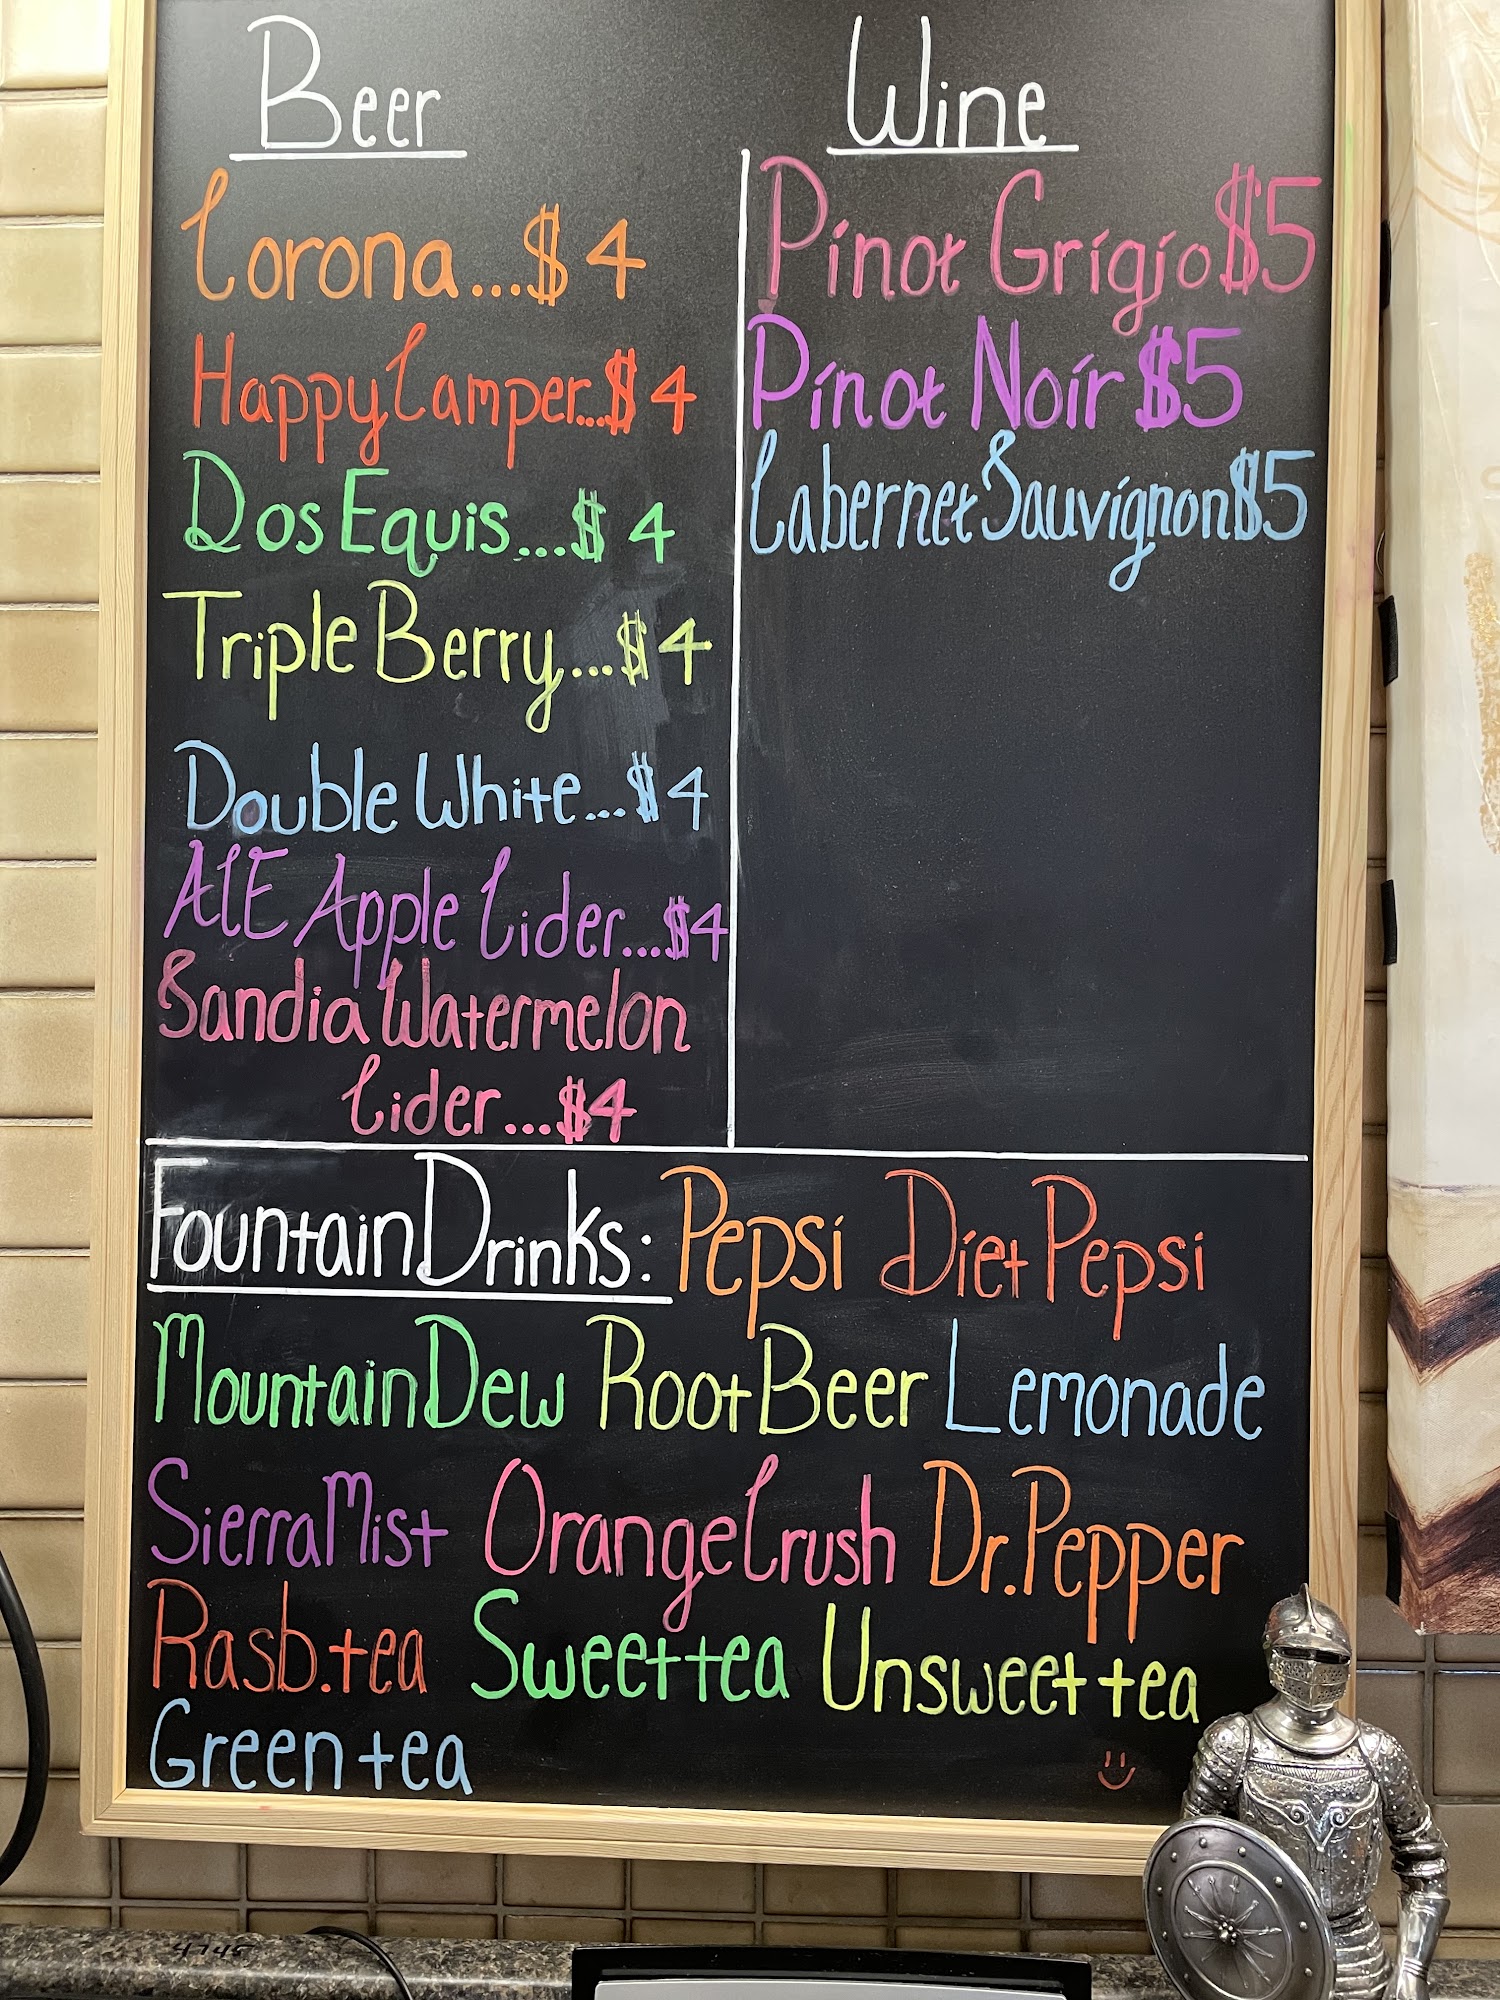 Beer
Corona...$4
Happy Camper...$4
Dos Equis...$4
Triple Berry...$4
Double White...$4
ACE Apple Cider...$4
Sandia Watermelon
Cider...$4
Wine
Pinot Grigio $5
Pinot Noir $5
Cabernet Sauvignon $5
Fountain Drinks: Pepsi Diet Pepsi
Mountain Dew Root Beer Lemonade
Sierra Mist Orange Crush Dr. Pepper
Rasb. tea Sweet tea Unsweet tea
Green tea
4745